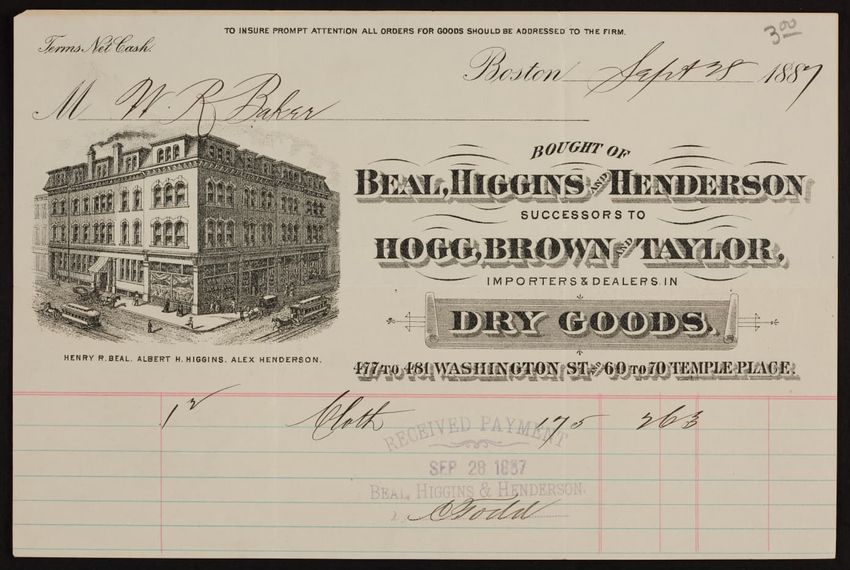 TO INSURE PROMPT ATTENTION ALL ORDERS FOR GOODS SHOULD BE ADDRESSED TO THE FIRM.
3 00
Terms, Net Cash.
Boston Sept 28 1887
M W. R Baker
BOUGHT OF
BEAL, HIGGINS AND HENDERSON
SUCCESSORS TO
HOGG, BROWN AND TAYLOR,
IMPORTERS & DEALERS IN
DRY GOODS.
HENRY R. BEAL. ALBERT H. HIGGINS. ALEX HENDERSON.
477 TO 481 WASHINGTON ST. AND 60 TO 70 TEMPLE PLACE.
Cloth 175 263
RECEIVED PAYMENT
SEP 28 1887
BEAL, HIGGINS & HENDERSON.
C Todd